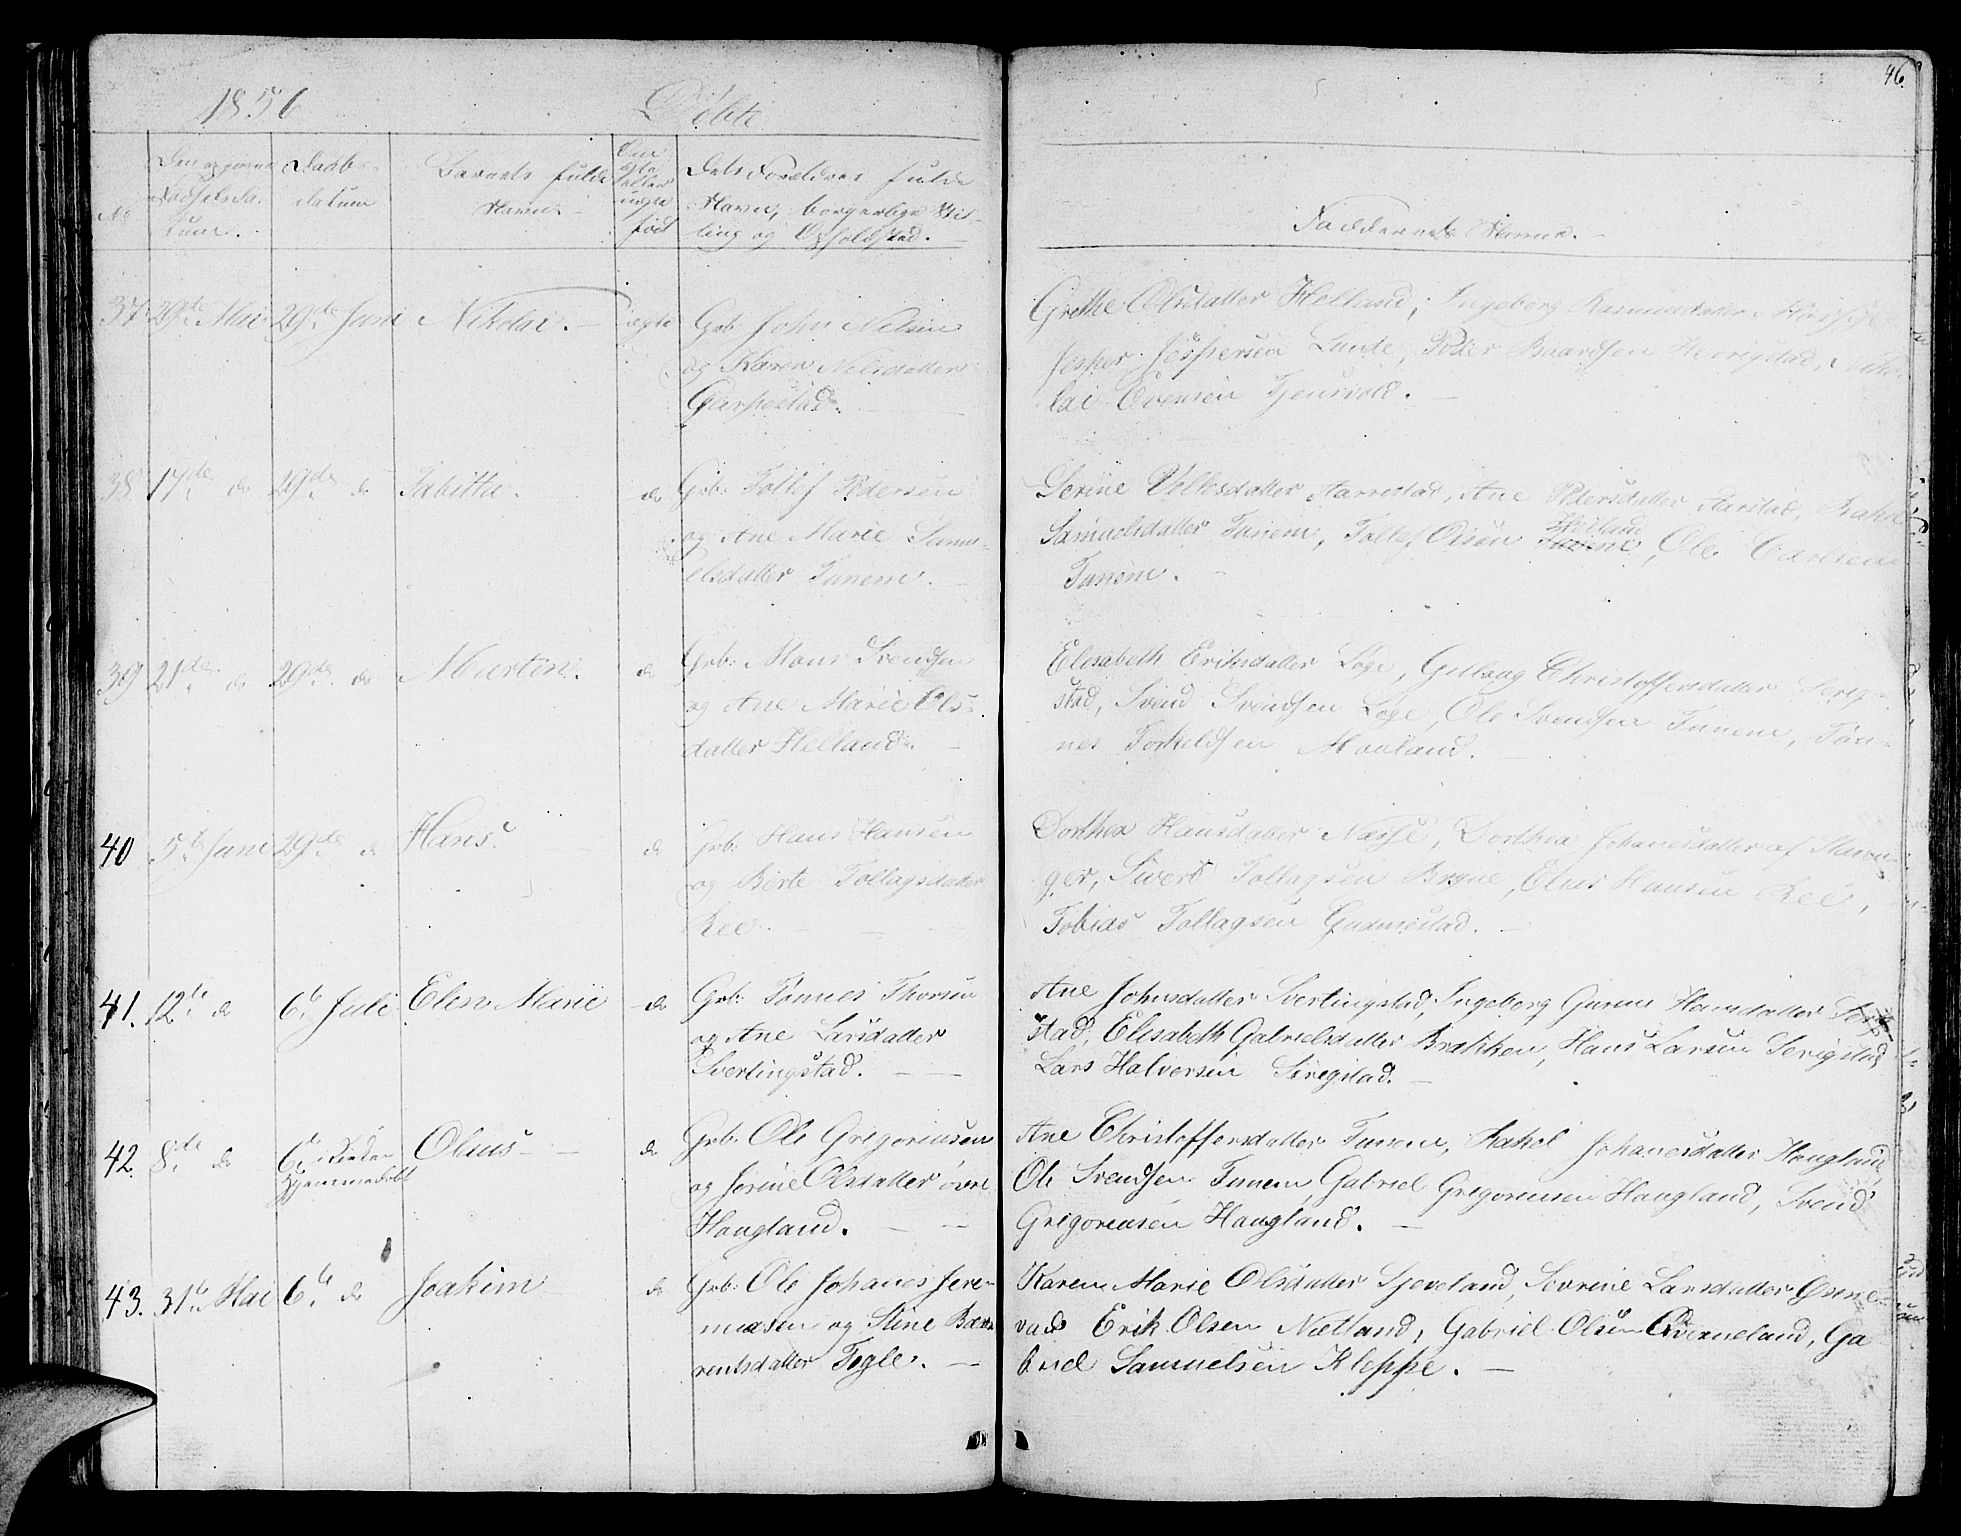 46.
1856 Döbte
No
Den opgivne Fødselsdatum.
Daabsdatum
Barnets fulde Navn.
Om ægte eller uægte født
Dets Forældres fulde Navn, borgerlige Stilling og Opholdsted.
Faddernes Navne.
37. 29de Mai 29de Juni Nikolai. ægte Grb: John Nilsen
og Karen Nilsdatter
Garpestad.
Grethe Olsdatter Helland, Ingeborg Rasmusdatter
Jesper Jespersen Lunde, Peder Baardsen Herrigstad, Niko-
lai Ovensen Tjensvold.
38 17de do 29de do Tabitta. do Grb: Tollef Pedersen
og Ane Marie Samu-
elsdatter Tunem.
Serine Vellesdatter Aarrestad, Ane Pedersdatter Aarstad, Rakel
Samuelsdatter Tunem, Tollef Olsen Helland, Ole Carlsen
Tunem.
39 21de do 29de do Martin. do Grb: Mons Svendsen
og Ane Marie Ols-
datter Helland.
Elisabeth Eriksdatter Løge, Gitlaug Christoffersdatter Serig-
stad, Svend Svendsen Løge, Ole Svendsen Tunem, Tøn-
nes Torkeldsen Mauland.
40 5te Juni 29de do Hans. do Grb: Hans Hansen
og Berte Tollagsdatter
Ree.
Dorthea Hansdatter Næsse, Dorthea Johanesdatter af Stavan-
ger, Sivert Tollagsen Bryne, Elias Hansen Ree,
Tobias Tollagsen Gudmestad.
41. 12te do 6te Juli Elen Marie do Grb: Tønnes Thorsen
og Ane Larsdatter
Sverlingstad.
Ane Johnsdatter Sverlingstad, Ingeborg Gurine Hansdatter Serig
stad, Elisabeth Gabrielsdatter Brakken, Hans Larsen Serigstad
Lars Halvorsen Sirigstad.
42. 8de do 6te Hjemmedøbt Olaus do Grb: Ole Gregoriussen
og Serine Olsdatter övre
Haugland.
Ane Christoffersdatter Tunem, Rakel Johanesdatter Haugland,
Ole Svendsen Tunem, Gabriel Gregoreusen Haugland, Svend
Gregoreusen Haugland.
43. 31te Mai 6te do Joakim do Grb: Ole Johanes Jere-
miasen og Stine Bæ
rentsdatter Tegle.
Karen Marie Olsdatter Sjeveland, Sevrine Larsdatter Ovene-
vad, Erik Olsen Netland, Gabriel Olsen Qverneland, Ga
briel Samuelsen Kleppe.